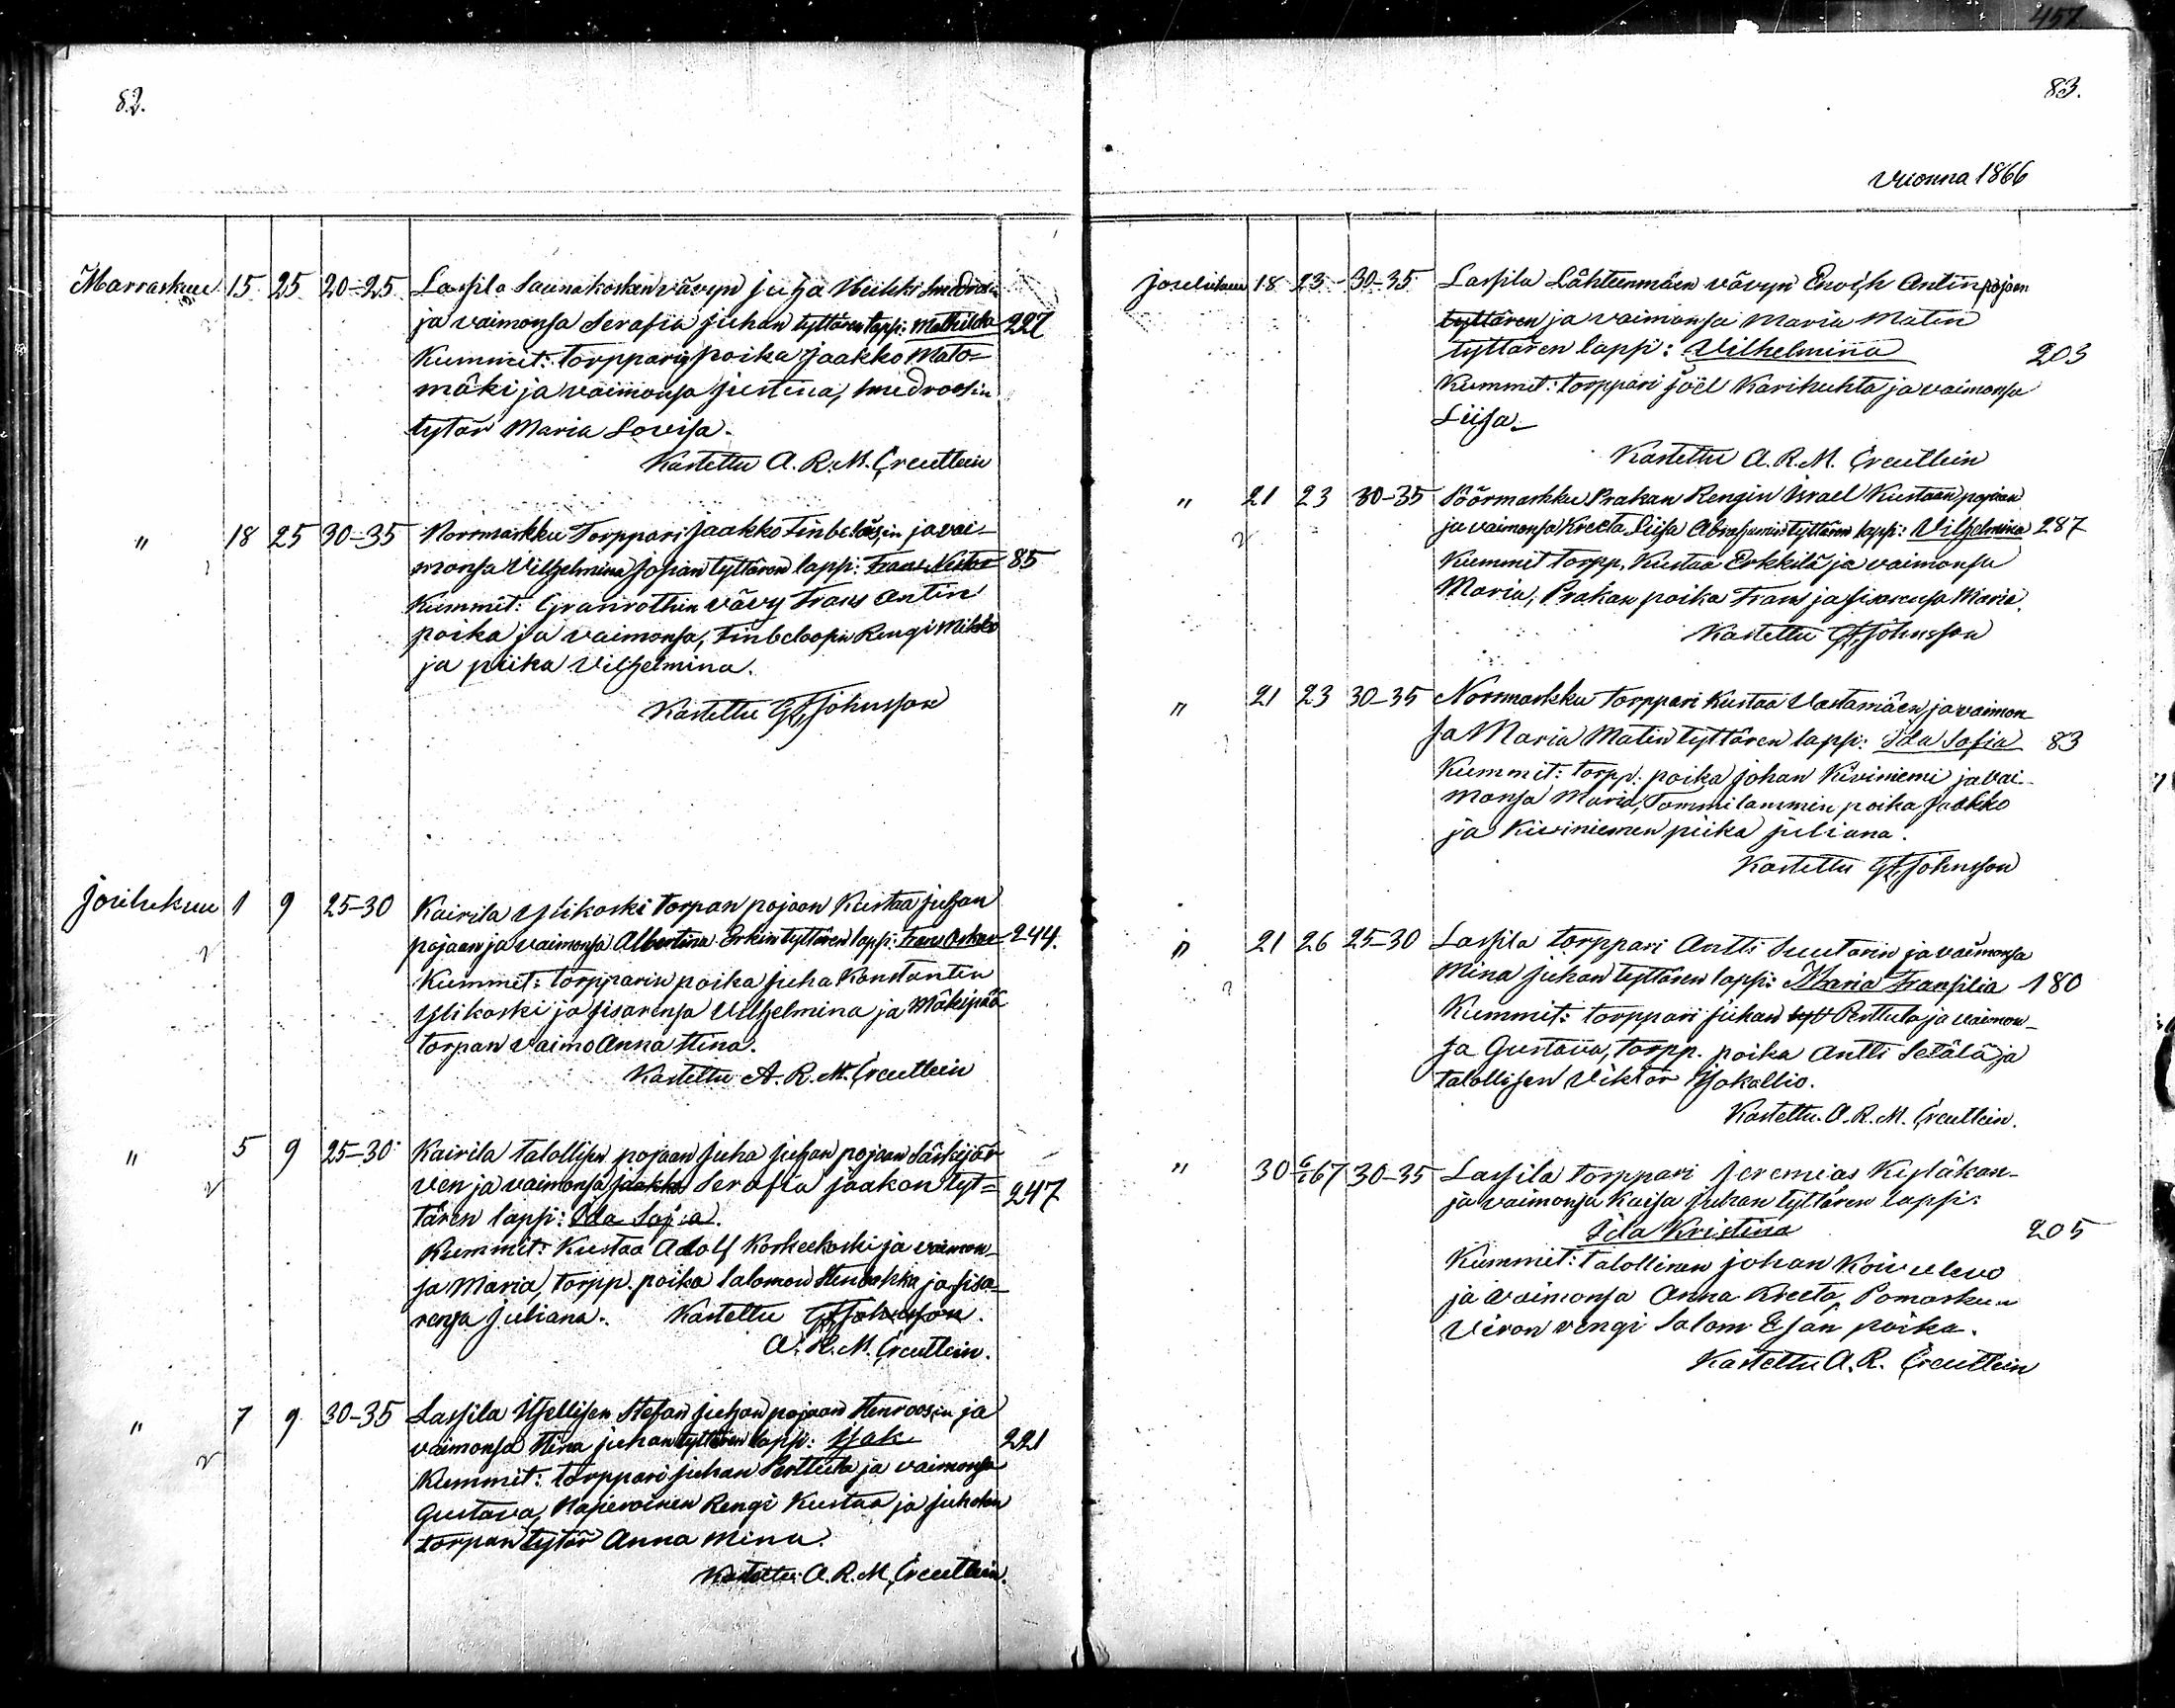 457
82.
Marraskuu 15 25 20-25 Lassila Saunakosken vävyn Juha Heikki Smedroos
ja vaimonsa Serafia Juhan tyttären lapsi: Mathilda 227
Kummit: torpparin poika Jaakko Mato-
mäki ja vaimonsa Justina, Smedroosin
tytär Maria Lovisa.
Kastettu A. R. M. Creutlein
" 18 25 30-35 Norrmarkku Torppari Jaakko Finbeloosin ja vai-
monsa Vilhelmina Josian tyttären lapsi: Frans Nestor 85
Kummit: Granrothin vävy Frans Antin
poika ja vaimonsa, Finbeloosin Rengi Mikko
ja piika Vilhelmina.
Kastettu G. F. Johnsson
Joulukuu 1 9 25-30 Kairila Ylikoski torpan pojaan Kustaa Juhan
pojaan ja vaimonsa Albertina Erkin tyttären lapsi: Frans Oskar 244.
Kummit: torpparin poika Juha Konstantin
Ylikoski ja sisarensa Vilhelmina ja Mäkipää
torpan vaimo Anna Stina.
Kastettu A. R. M. Creutlein
" 5 9 25-30 Kairila talollisen pojaan Juha Juhan pojaan Särkijär
ven ja vaimonsa Jaakko Serafia Jaakon tyt=
tären lapsi: Ida Sofia. 247
Kummit: Kustaa Adolf Koskeskoski ja vaimon-
sa Maria, torpp. poika Salomon ja sisa-
rensa Juliana. Kastettu G. F. Johnsson.
A. R. M. Creutlein.
" 7 9 30-35 Lassila Itsellisen Stefan Juhan pojaan Stenroosin ja
vaimonsa Stina Juhan tyttären lapsi: Isak 221
Kummit: torppari Juhan Perttula ja vaimonsa
Gustava, Rengi Kustaa ja
torpan tytär Anna Mina.
Kastettu A. R. M. Creutlein.
83.
Vuonna 1866
Joulukuu 18 23 30-35 Lassila Lähteenmäen vävyn Enoch Antin pojaan
tyttären ja vaimonsa Maria Matin
tyttären lapsi: Vilhelmina 203
Kummit: torppari Joel Karihuhta ja vaimonsa
Liisa.
Kastettu A. R. M. Creutlein
" 21 23 30-35 Söörmarkku Prakan Rengin Israel Kustaan pojaan
ja vaimonsa Kreeta Liisa Abrahamin tyttären lapsi: Vilhelmina 287
Kummit torpp. Kustaa Erkkilä ja vaimonsa
Maria, Prakan poika Frans ja sisarensa Maria.
Kastettu G. F. Johnsson
" 21 23 30-35 Norrmarkku torppari Kustaa Vastamäen ja vaimon
sa Maria Matin tyttären lapsi: Ida Sofia 83
Kummit: torpp. poika Johan Kiviniemi ja vai-
monsa Maria, Tommilammin poika Jaakko
ja Kiviniemen piika Juliana.
Kastettu G. F. Johnsson
" 21 26 25-30 Lassila torppari Antti Suutarin ja vaimonsa
Mina Juhan tyttären lapsi: Maria Fransilia 180
Kummit: torppari Juhan tyt Perttula ja vaimon-
sa Gustava, torpp. poika Antti Setälä ja
talollisen Viktor Isokallio.
Kastettu A. R. M. Creutlein.
" 30 6/1 67 30-35 Lassila torppari Jeremias Kyläkan-
ja vaimonsa Kaisa Juhan tyttären lapsi:
Ida Kristina 205
Kummit: talollinen Johan
ja vaimonsa Anna Kreeta, Pomarkun
Viron rengi Salom. Esan poika.
Kastettu A. R. Creutlein